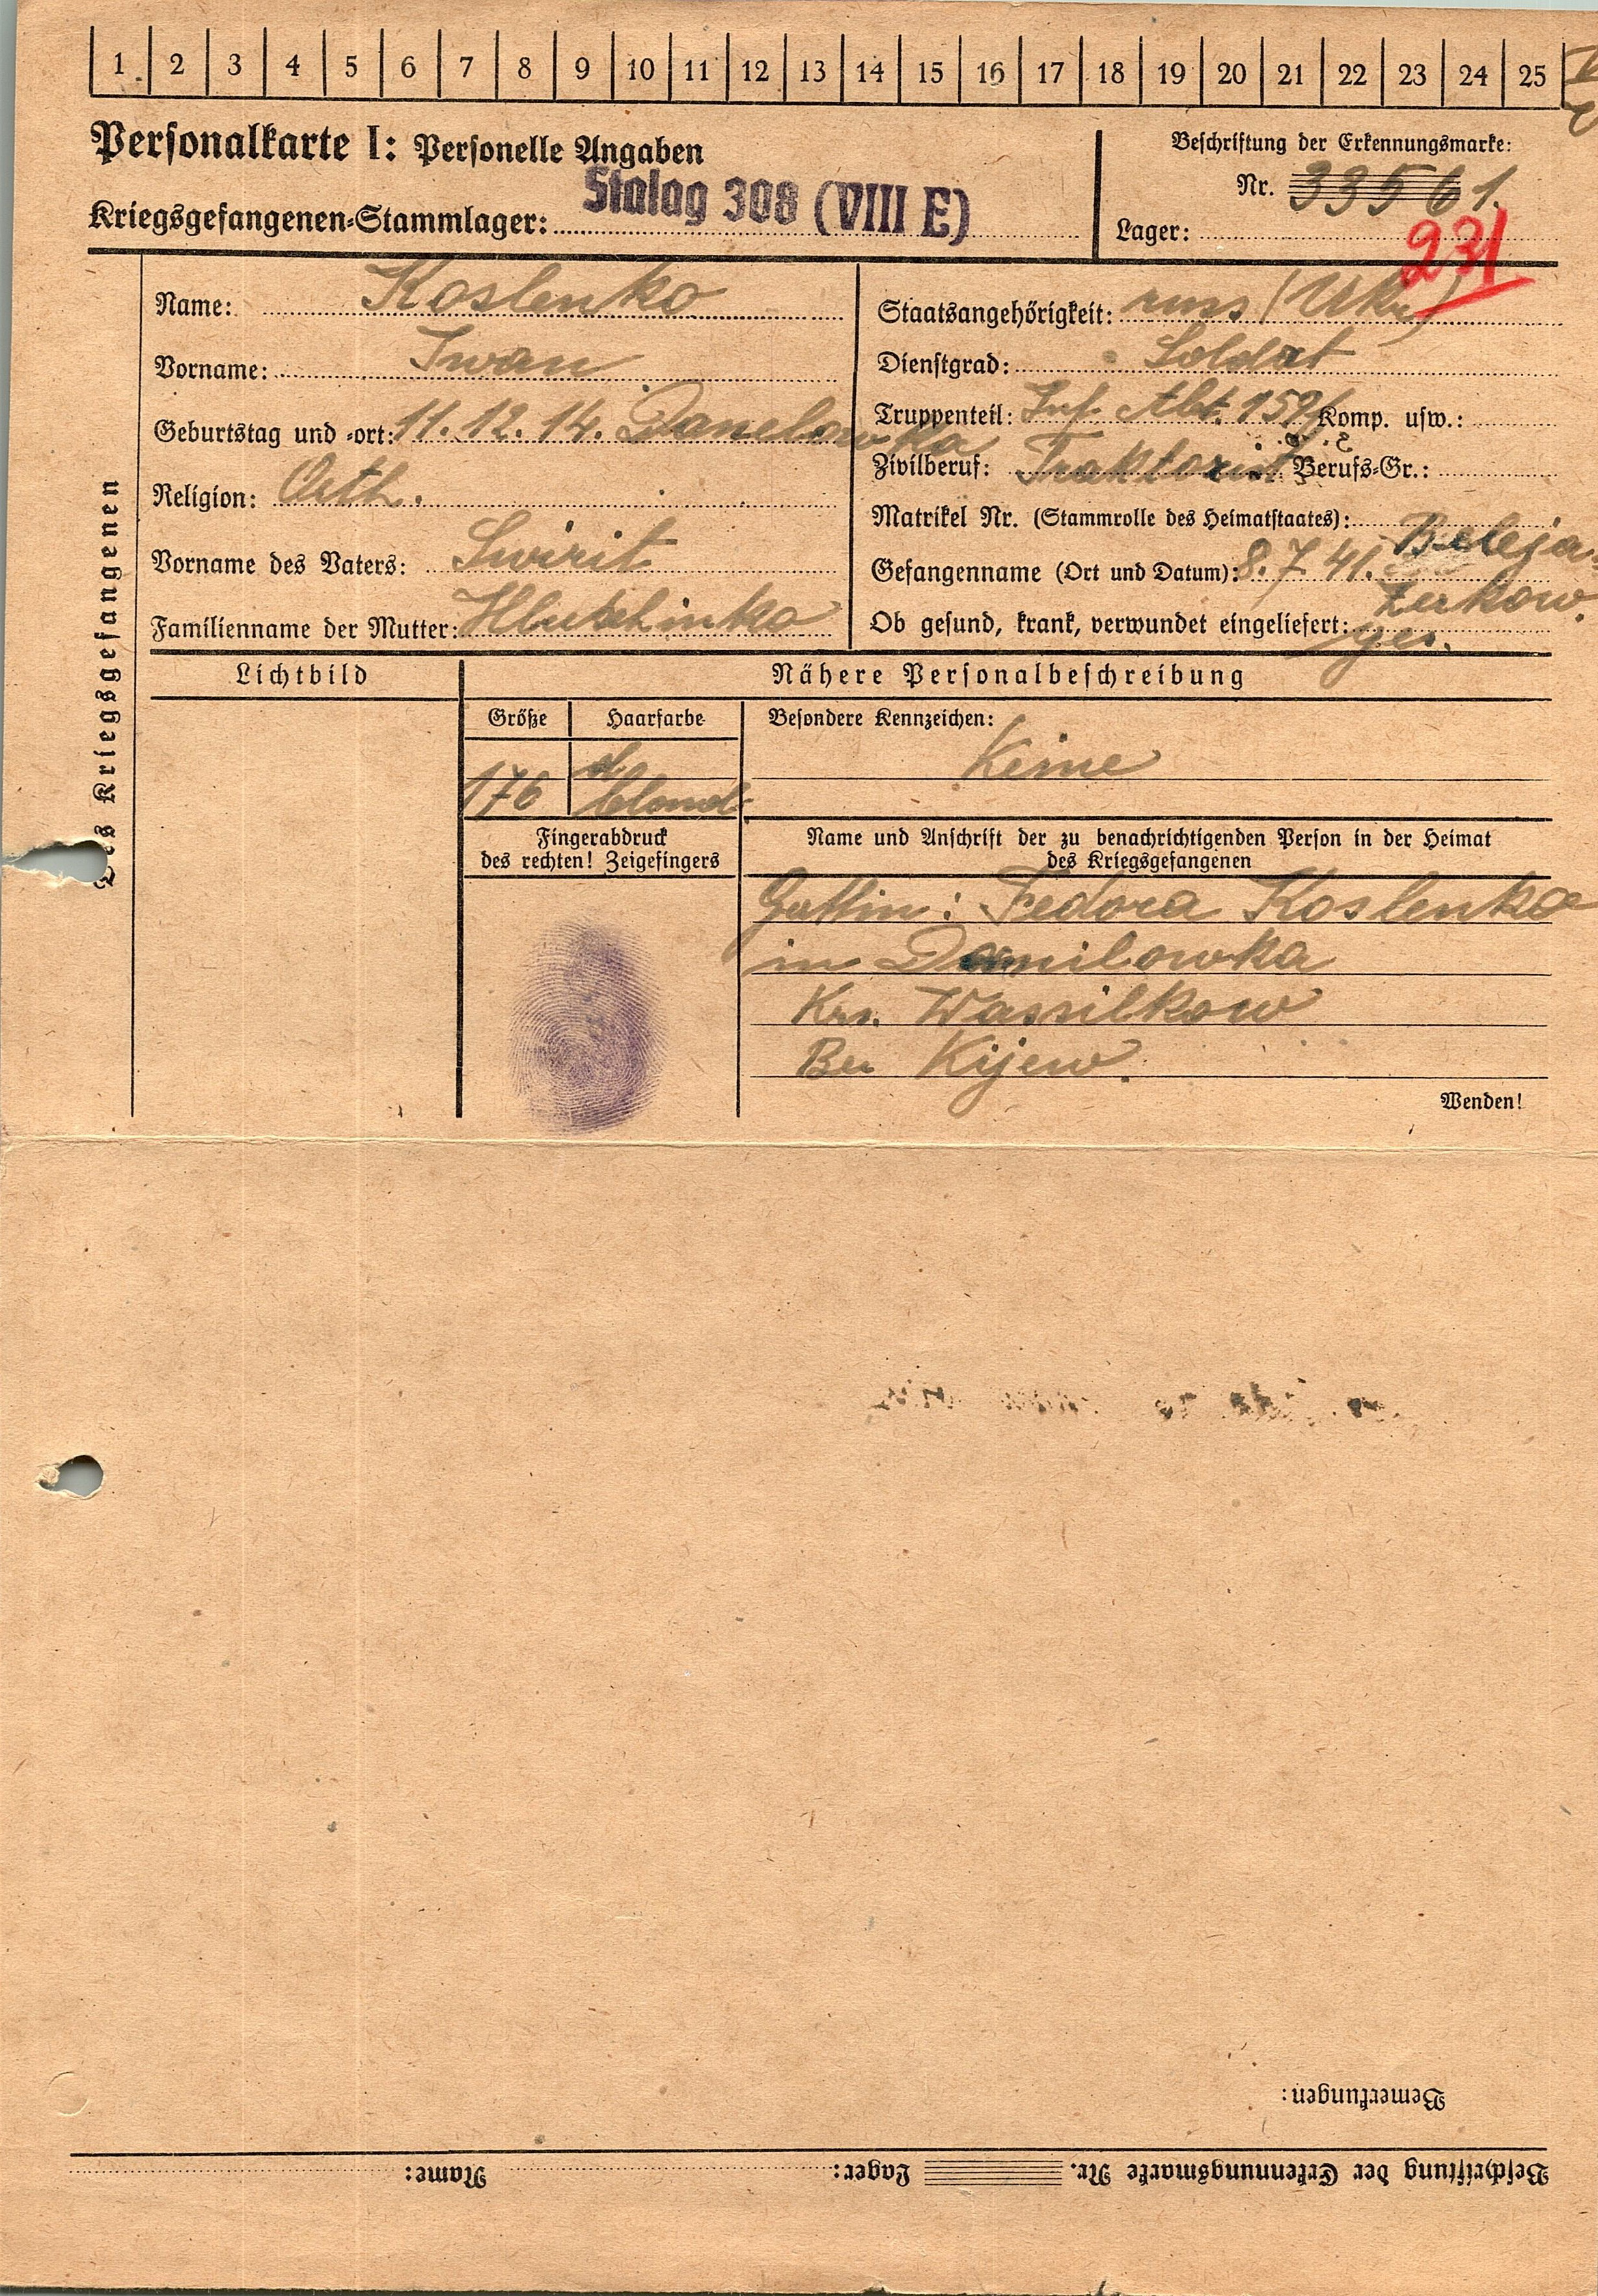 1 2 3 4 5 6 7 8 9 10 11 12 13 14 15 16 17 18 19 20 21 22 23 24 25
Personalkarte I: Personelle Angaben
Kriegsgefangenen-Stammlager: Stalag 308 (VIII E)
Beschriftung der Erkennungsmarke:
Nr. 33561.
Lager:
231
Des Kriegsgefangenen
Name: Koslenko
Vorname: Iwan
Geburtstag und -ort: 11.12.14. Danelowka
Religion: Orth.
Vorname des Vaters: Swirit
Familienname der Mutter:
Staatsangehörigkeit: russ (Ukr)
Dienstgrad: Soldat
Truppenteil: Inf. Abt. Komp. usw.:
Zivilberuf: Traktorist Berufs-Gr.:
Matrikel Nr. (Stammrolle des Heimatstaates):
Gefangenname (Ort und Datum): 8.7.41. Beleja-
Zerkow.
Ob gesund, krank, verwundet eingeliefert: ges.
Lichtbild
Nähere Personalbeschreibung
Größe Haarfarbe
176 d. blond
Besondere Kennzeichen:
Keine
Fingerabdruck
des rechten! Zeigefingers
Name und Anschrift der zu benachrichtigenden Person in der Heimat
des Kriegsgefangenen
Gattin: Fedora Koslenko
in Danilowka
Krs. Wassilkow
Bez Kijew.
Wenden!
Bemerkungen:
Beschriftung der Erkennungsmarke Nr. Lager: Name: